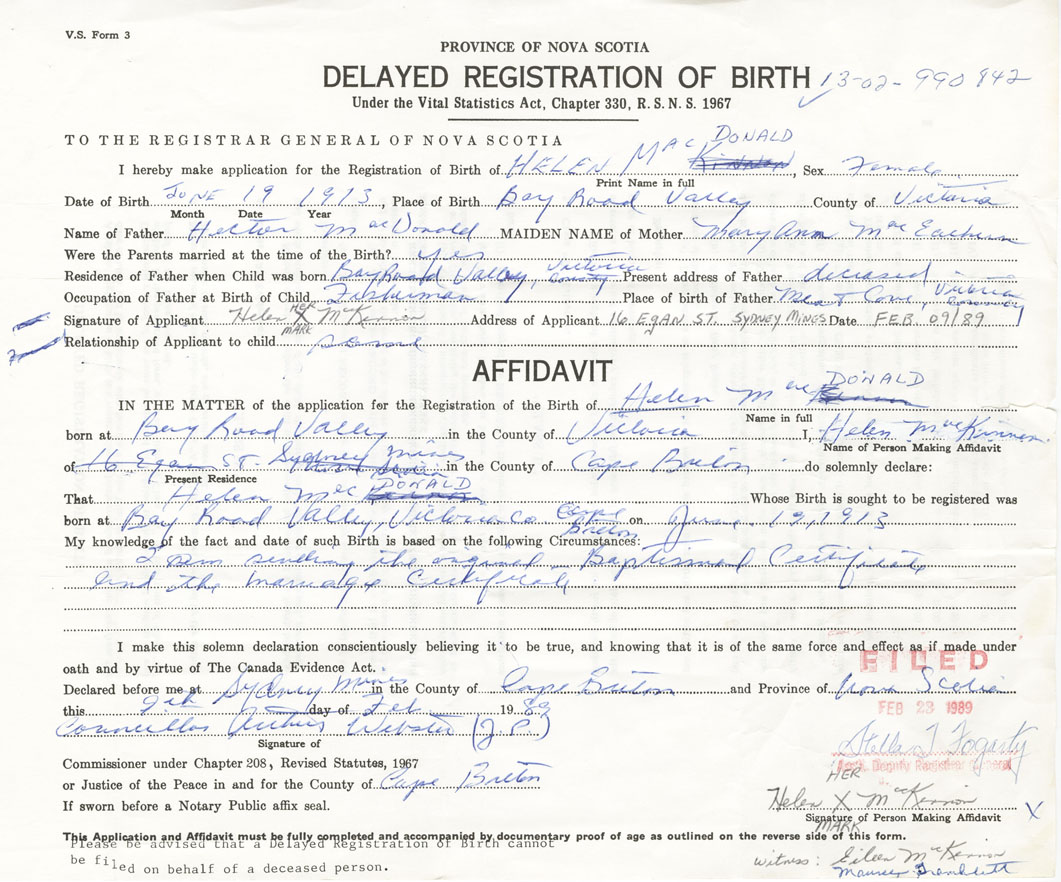 V.S. Form 3
PROVINCE OF NOVA SCOTIA
DELAYED REGISTRATION OF BIRTH 13-02-990842
Under the Vital Statistics Act, Chapter 330, R.S.N.S. 1967
TO THE REGISTRAR GENERAL OF NOVA SCOTIA
I hereby make application for the Registration of Birth of HELEN MacDONALD, Sex Female
Print Name in full
Date of Birth JUNE 19 1913, Place of Birth Bay Road Valley County of Victoria
Month Date Year
Name of Father Hector MacDonald MAIDEN NAME of Mother Mary Ann MacEachern
Were the Parents married at the time of the Birth? yes
Residence of Father when Child was born Bay Road Valley, Victoria County Present address of Father deceased
Occupation of Father at Birth of Child Fisherman Place of birth of Father Meat Cove, Victoria
Signature of Applicant Helen HER X MARK McKinnon Address of Applicant 16 EGAN ST. SYDNEY MINES Date FEB. 09/89
Relationship of Applicant to child
AFFIDAVIT
IN THE MATTER of the application for the Registration of the Birth of Helen MacDONALD
Name in full
born at Bay Road Valley in the County of Victoria I, Helen MacKinnon
Name of Person Making Affidavit
of 16 Egan ST. Sydney Mines in the County of Cape Breton do solemnly declare:
Present Residence
That Helen MacDONALD Whose Birth is sought to be registered was
born at Bay Road Valley, Victoria Co Cape Breton on June 19, 1913
My knowledge of the fact and date of such Birth is based on the following Circumstances:
I am sending the original Baptismal Certificate
and the marriage Certificate
I make this solemn declaration conscientiously believing it to be true, and knowing that it is of the same force and effect as if made under
oath and by virtue of The Canada Evidence Act.
FILED
Declared before me at Sydney Mines in the County of Cape Breton and Province of Nova Scotia
this 9th day of Feb 1989
FEB 23 1989
Councillor Webster (J.P.)
Signature of
Stella T Fogarty
Deputy Registrar General
Commissioner under Chapter 208, Revised Statutes, 1967
or Justice of the Peace in and for the County of Cape Breton
If sworn before a Notary Public affix seal.
HER
Helen X McKinnon X
MARK
Signature of Person Making Affidavit
This Application and Affidavit must be fully completed and accompanied by documentary proof of age as outlined on the reverse side of this form.
Please be advised that a Delayed Registration of Birth cannot
be filed on behalf of a deceased person.
witness: Eileen McKinnon